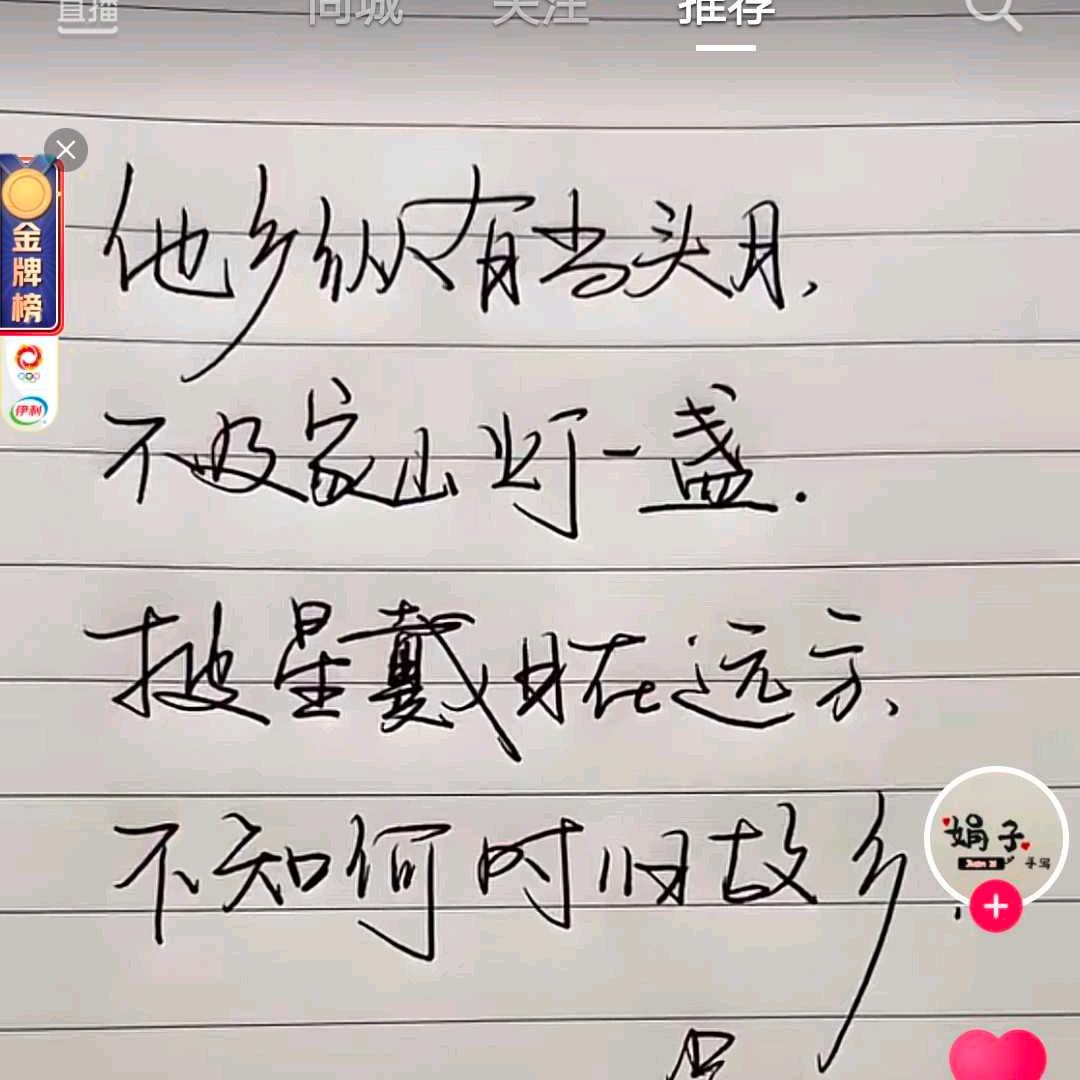 直播 同城 关注 推荐
金牌榜
伊利
他乡纵有当头月，
不及家山灯一盏.
披星戴月在远方、
不知何时归故乡
娟子
手写